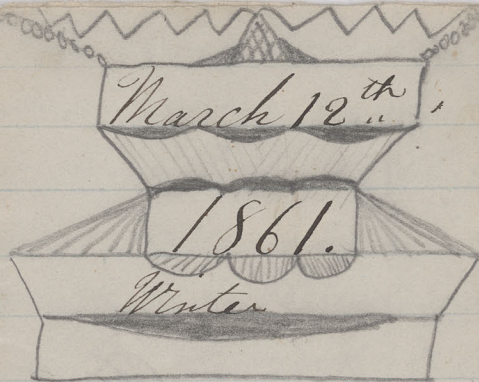 March 12th
1861.
Winter